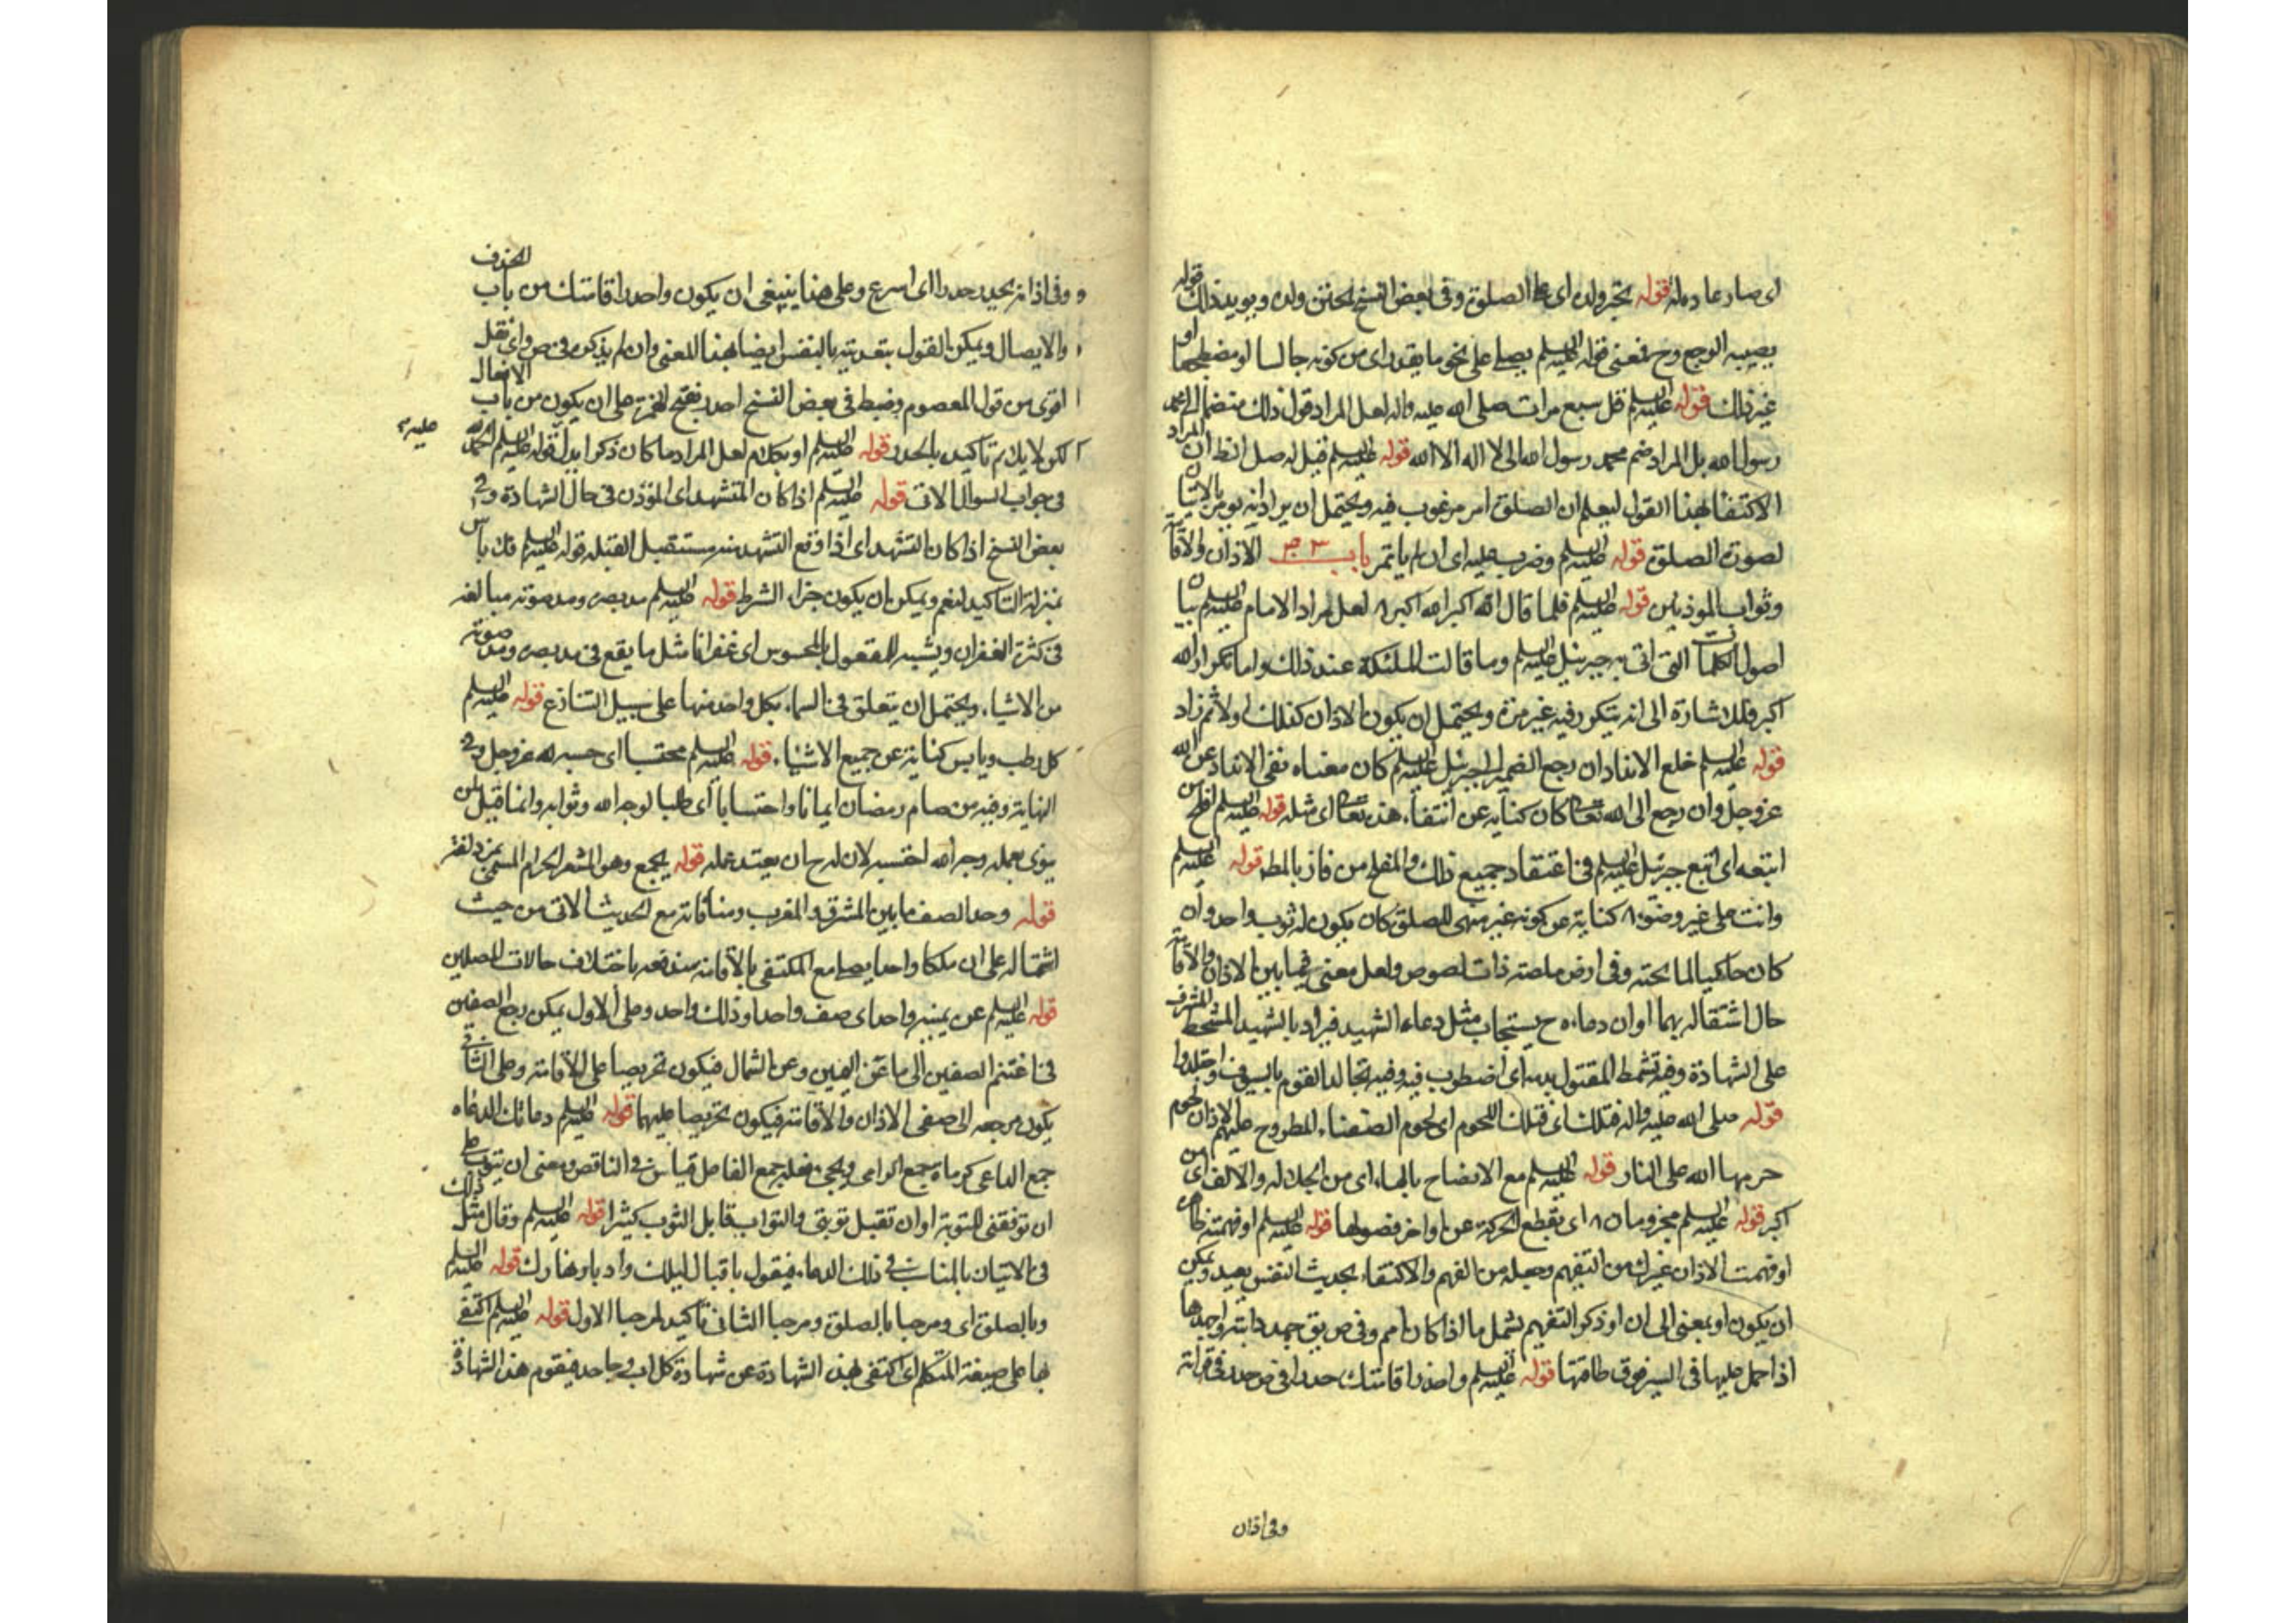 اى صار عادة له قوله يخبر ولده اى على الصلوة وفى بعض النسخ يختن ولده ويويد ذلك قوله
يصيبه الوجع وح فمعنى قوله عليه السلم يصلى على نحو ما يقدر اى من كونه جالسا او مضطجعا او
غير ذلك قوله عليه السلم قل سبع مرات صلى الله عليه واله لعل المراد قول ذلك منضما الى محمد
رسول الله بل المراد ضم محمد رسول الله الى لا اله الا الله قوله عليه السلم قيل له صل الظ ان المراد
الاكتفا بهذا القول ليعلم ان الصلوة امر مرغوب فيه ويحتمل ان يراد انه يومر بالاتيان
لصورة الصلوة قوله عليه السلم وضرب عليه اى ان لم ياتمر باب ٣ الاذان والاقامة
وثواب الموذنين قوله عليه السلم فلما قال الله اكبر الله اكبر لعل مراد الامام عليه السلم بيان
اصول الكلمات التى اتى به جبرئيل عليه السلم وما قالت الملئكة عند ذلك واما تكرار الله
اكبر فللاشارة الى انه يتكرر فيه غير مرة ويحتمل ان يكون الاذان كذلك اولا ثم زاد
قوله عليه السلم خلع الانداد ان رجع الضمير الى جبرئيل عليه السلم كان معناه نفى الانداد عن الله
عز وجل وان رجع الى الله تعالى كان كناية عن انتفاء هذه تعالى اى مثله قوله عليه السلم افلح من
اتبعه اى اتبع جبرئيل عليه السلم فى اعتقاد جميع ذلك والمفلح من فاز بالمط قوله عليه السلم
وانت على غير وضوء كناية عن كونه غير متهى للصلوة كان يكون له ثوب واحد وان
كان حاكيا لما تحته وفى ارض ملصة ذات لصوص ولعل معنى فيما بين الاذان والاقامة
حال اشتقاله بهما او ان دعاءه ح يستجاب مثل دعاء الشهيد فيراد بالشهيد المتشحط المشرف
على الشهادة وفيه تشحط المقتول بدمه اى اضطرب فيه وفيه تجالد القوم بالسيوف واجتلدوا
قوله صلى الله عليه واله فتلك اى فتلك اللحوم اى لحوم الضعفاء المطروح عليهم الاذان لحوم
حرمها الله على النار قوله عليه السلم مع الافصاح بالهاء اى من الجلالة والالف اى من
اكبر قوله عليه السلم مجزومان اى بقطع الحركة عن اواخر فصولها قوله عليه السلم او فهمته
او فهمت الاذان غيرك من التفهيم وجعله من الفهم والاكتفاء بحديث النفس بعيد ويمكن
ان يكون او بمعنى الى ان او ذكر التفهيم يشمل ما اذا كان امم وفى ص يق جهد دابته واجهدها
اذا حمل عليها فى السير فوق طاقتها قوله عليه السلم واحدر اقامتك حدرا فى ص حدر فى قرائته
وفى اذان
وفى اذانه يحدر حدرا اى اسرع وعلى هذا ينبغى ان يكون واحدر اقامتك من باب الحذف
والايصال ويمكن القول بتعديته بالنفس ايضا بهذا المعنى وان لم يذكره فى ص واى نقل
اقوى من قول المعصوم وضبط فى بعض النسخ احدر بفتح الهمزة على ان يكون من باب الافعال
لكن لا يلايم تاكيده بالحدر قوله عليه السلم او يكلم لعل المراد ما كان ذكرا بدليل قوله عليه السلم الحمد لله
عليه
فى جواب السوال الاتى قوله عليه السلم اذا كان المتشهد اى الموذن فى حال الشهادة وفى
بعض النسخ اذا كان التشهد اى اذا وقع التشهد منه مستقبل القبلة قوله عليه السلم فلا باس
بمنزلة التاكيد لنعم ويمكن ان يكون جزاء الشرط قوله عليه السلم مد بصره ومد صوته مبالغة
فى كثرة الغفران وتشبيه للمعقول بالمحسوس اى غفرانا مثل ما يقع فى مد بصره ومد صوته
من الاشياء ويحتمل ان يتعلق فى السماء بكل واحد منها على سبيل التنازع قوله عليه السلم
كل رطب ويابس كناية عن جميع الاشياء قوله عليه السلم محتسبا اى حسبة لله عز وجل وفى
النهاية وفيه من صام رمضان ايمانا واحتسابا اى طلبا لوجه الله وثوابه وانما قيل لمن
ينوى بعمله وجه الله احتسبه لان له ح ان يعتد عمله قوله بجمع وهو المشعر الحرام المسمى بمزدلفة
قوله وحد الصف ما بين المشرق والمغرب ومنافاته مع الحديث الاتى من حيث
اشتماله على ان ملكا واحدا يصلى مع المكتفى بالاقامة مندفعة باختلاف حالات المصلين
قوله عليه السلم عن يمينه واحد اى صف واحد او ذلك واحد وعلى الاول يمكن رجع الصفين
فى اغتنم الصفين الى ما عن اليمين وعن الشمال فيكون تحريصا على الاقامة وعلى الثانى
يكون مرجعه الى صفى الاذان والاقامة فيكون تحريصا عليهما قوله عليه السلم دعائك الدعاه
جمع الداعى كرماة جمع الرامى ويجىء فعلة جمع الفاعل قياس فى الناقص ومعنى ان تتوب على
ان توفقنى للتوبة او ان تقبل توبتى والتواب قابل التوب كثيرا قوله عليه السلم وقال مثل ذلك
فى الاتيان بالمناسب فى ذلك الدعاء فيقول باقبال ليلك وادبار نهارك قوله عليه السلم
وبالصلوة اى ومرحبا بالصلوة ومرحبا الثانى تاكيد لمرحبا الاول قوله عليه السلم اكتفى
بها على صيغة المتكلم اى اكتفى بهذه الشهادة عن شهادة كل اب وجاحد فيقوم هذه الشهادة